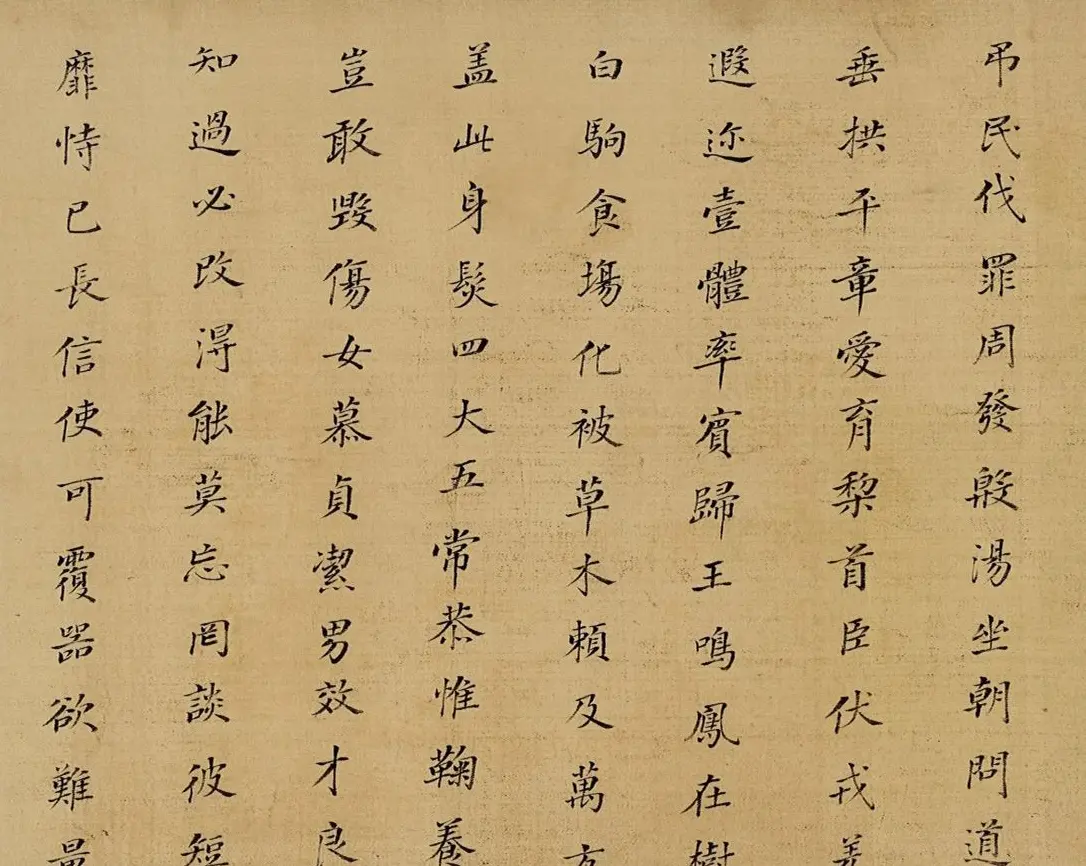 弔民伐罪周發殷湯坐朝問道
垂拱平章愛育黎首臣伏戎羌
遐迩壹體率賓歸王鳴鳳在樹
白駒食場化被草木賴及萬方
盖此身髮四大五常恭惟鞠養
豈敢毀傷女慕貞潔男效才良
知過必改得能莫忘罔談彼短
靡恃己長信使可覆器欲難量